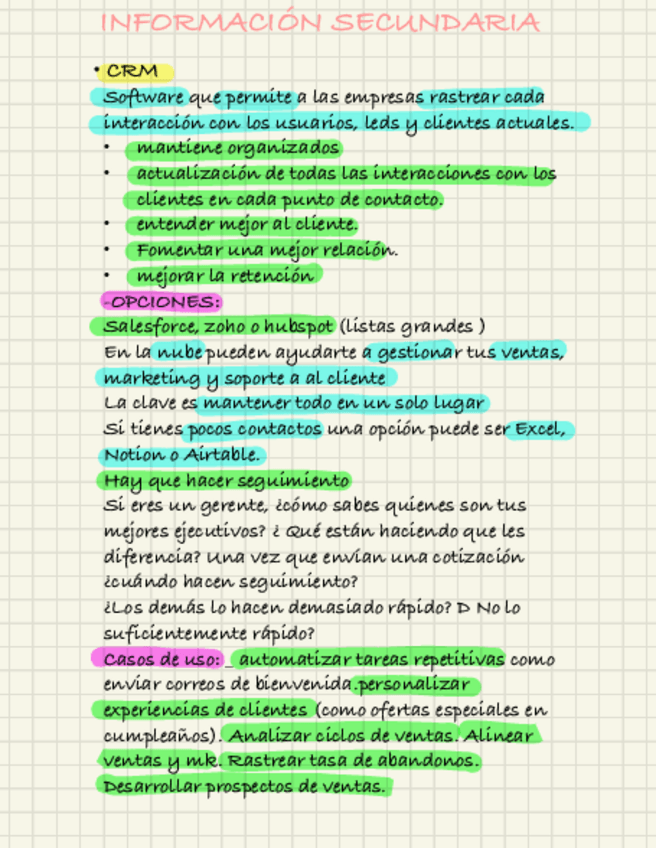 INFORMACIÓN SECUNDARIA
• CRM
Software que permite a las empresas rastrear cada
interacción con los usuarios, leds y clientes actuales.
• mantiene organizados
• actualización de todas las interacciones con los
clientes en cada punto de contacto.
• entender mejor al cliente.
• Fomentar una mejor relación.
• mejorar la retención
-OPCIONES:
Salesforce, zoho o hubspot (listas grandes )
En la nube pueden ayudarte a gestionar tus ventas,
marketing y soporte a al cliente
La clave es mantener todo en un solo lugar
Si tienes pocos contactos una opción puede ser Excel,
Notion o Airtable.
Hay que hacer seguimiento
Si eres un gerente, ¿cómo sabes quienes son tus
mejores ejecutivos? ¿ Qué están haciendo que les
diferencia? Una vez que envían una cotización
¿cuándo hacen seguimiento?
¿Los demás lo hacen demasiado rápido? D No lo
suficientemente rápido?
Casos de uso: _ automatizar tareas repetitivas como
enviar correos de bienvenida.personalizar
experiencias de clientes (como ofertas especiales en
cumpleaños). Analizar ciclos de ventas. Alinear
ventas y mk. Rastrear tasa de abandonos.
Desarrollar prospectos de ventas.